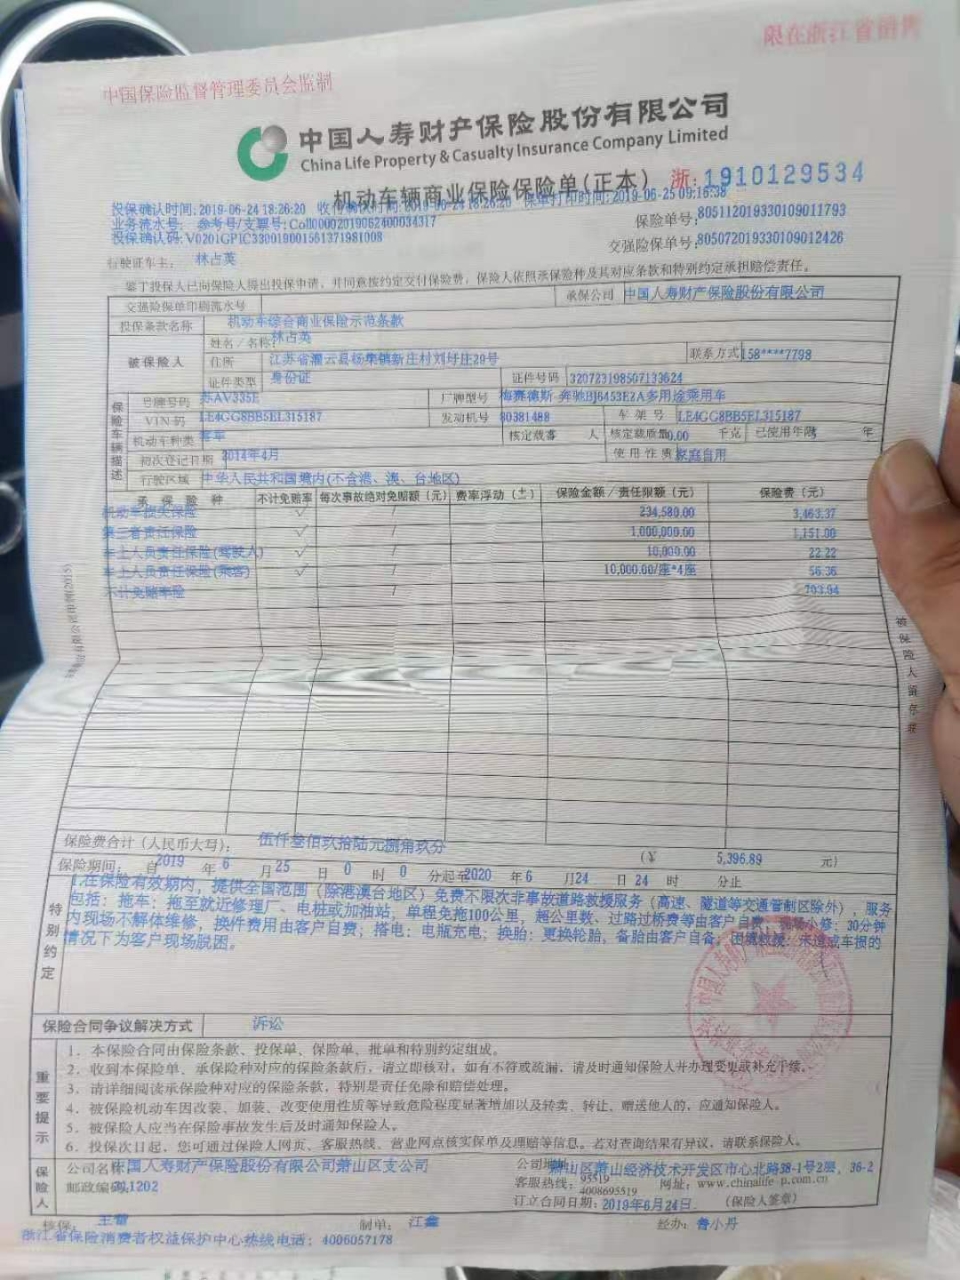 限在浙江省销售
中国保险监督管理委员会监制
中国人寿财产保险股份有限公司
China Life Property & Casualty Insurance Company Limited
机动车辆商业保险保险单(正本) 浙:1910129534
投保确认时间:2019-06-24 18:26:20 保单打印时间:2019-06-25 09:16:38
业务流水号: 参考号/支票号:Coll00002019062400034317
保险单号:805112019330109011793
投保确认码:V0201GPIC330019001561371981008
交强险保单号:805072019330109012426
行驶证车主: 林占英
鉴于投保人已向保险人提出投保申请,并同意按约定交付保险费,保险人依照承保险种及其对应条款和特别约定承担赔偿责任。
交强险保单印刷流水号 承保公司 中国人寿财产保险股份有限公司
投保条款名称 机动车综合商业保险示范条款
被保险人 姓名/名称 林占英
住所 江苏省灌云县杨集镇新庄村刘圩庄29号 联系方式 158****7798
证件类型 身份证 证件号码 320723198507133624
保险车辆描述
号牌号码 苏AV335E 厂牌型号 梅赛德斯-奔驰BJ6453E2A多用途乘用车
VIN码 LE4GG8BB5EL315187 发动机号 80381488 车架号 LE4GG8BB5EL315187
机动车种类 客车 核定载客 人 核定载质量0.00 千克 已使用年限 年
初次登记日期 2014年4月 使用性质 家庭自用
行驶区域 中华人民共和国境内(不含港、澳、台地区)
承保险种 不计免赔率 每次事故绝对免赔额(元) 费率浮动(±) 保险金额/责任限额(元) 保险费(元)
机动车损失保险 √ / 234,580.00 3,463.37
第三者责任保险 √ / 1,000,000.00 1,151.00
车上人员责任保险(驾驶人) √ / 10,000.00 22.22
车上人员责任保险(乘客) √ / 10,000.00/座*4座 56.36
不计免赔率险 / 703.94
被保险人留存联
保险费合计(人民币大写): 伍仟叁佰玖拾陆元捌角玖分 (¥ 5,396.89 元)
保险期间: 自 2019 年 6 月 25 日 0 时 0 分起至 2020 年 6 月 24 日 24 时 分止
特别约定
1.在保险有效期内,提供全国范围(除港澳台地区)免费不限次非事故道路救援服务(高速、隧道等交通管制区除外),服务
包括:拖车:拖至就近修理厂、电桩或加油站,单程免拖100公里,超公里数、过路过桥费等由客户自费;现场小修:30分钟
内现场不解体维修,换件费用由客户自费;搭电:电瓶充电;换胎:更换轮胎,备胎由客户自备;困境救援:未造成车损的
情况下为客户现场脱困。
保险合同争议解决方式 诉讼
重要提示
1.本保险合同由保险条款、投保单、保险单、批单和特别约定组成。
2.收到本保险单、承保险种对应的保险条款后,请立即核对,如有不符或疏漏,请及时通知保险人并办理变更或补充手续。
3.请详细阅读承保险种对应的保险条款,特别是责任免除和赔偿处理。
4.被保险机动车因改装、加装、改变使用性质等导致危险程度显著增加以及转卖、转让、赠送他人的,应通知保险人。
5.被保险人应当在保险事故发生后及时通知保险人。
6.投保次日起,您可通过保险人网页、客服热线、营业网点核实保单及理赔等信息。若对查询结果有异议,请联系保险人。
保险人
公司名称 中国人寿财产保险股份有限公司萧山区支公司 公司地址 萧山区萧山经济技术开发区市心北路38-1号2层,36-2
邮政编码 311202 客服热线: 95519 4008695519 网址: www.chinalife-p.com.cn
订立合同日期: 2019年6月24日. (保险人签章)
核保: 王雷 制单: 江鑫 经办: 鲁小丹
浙江省保险消费者权益保护中心热线电话: 4006057178